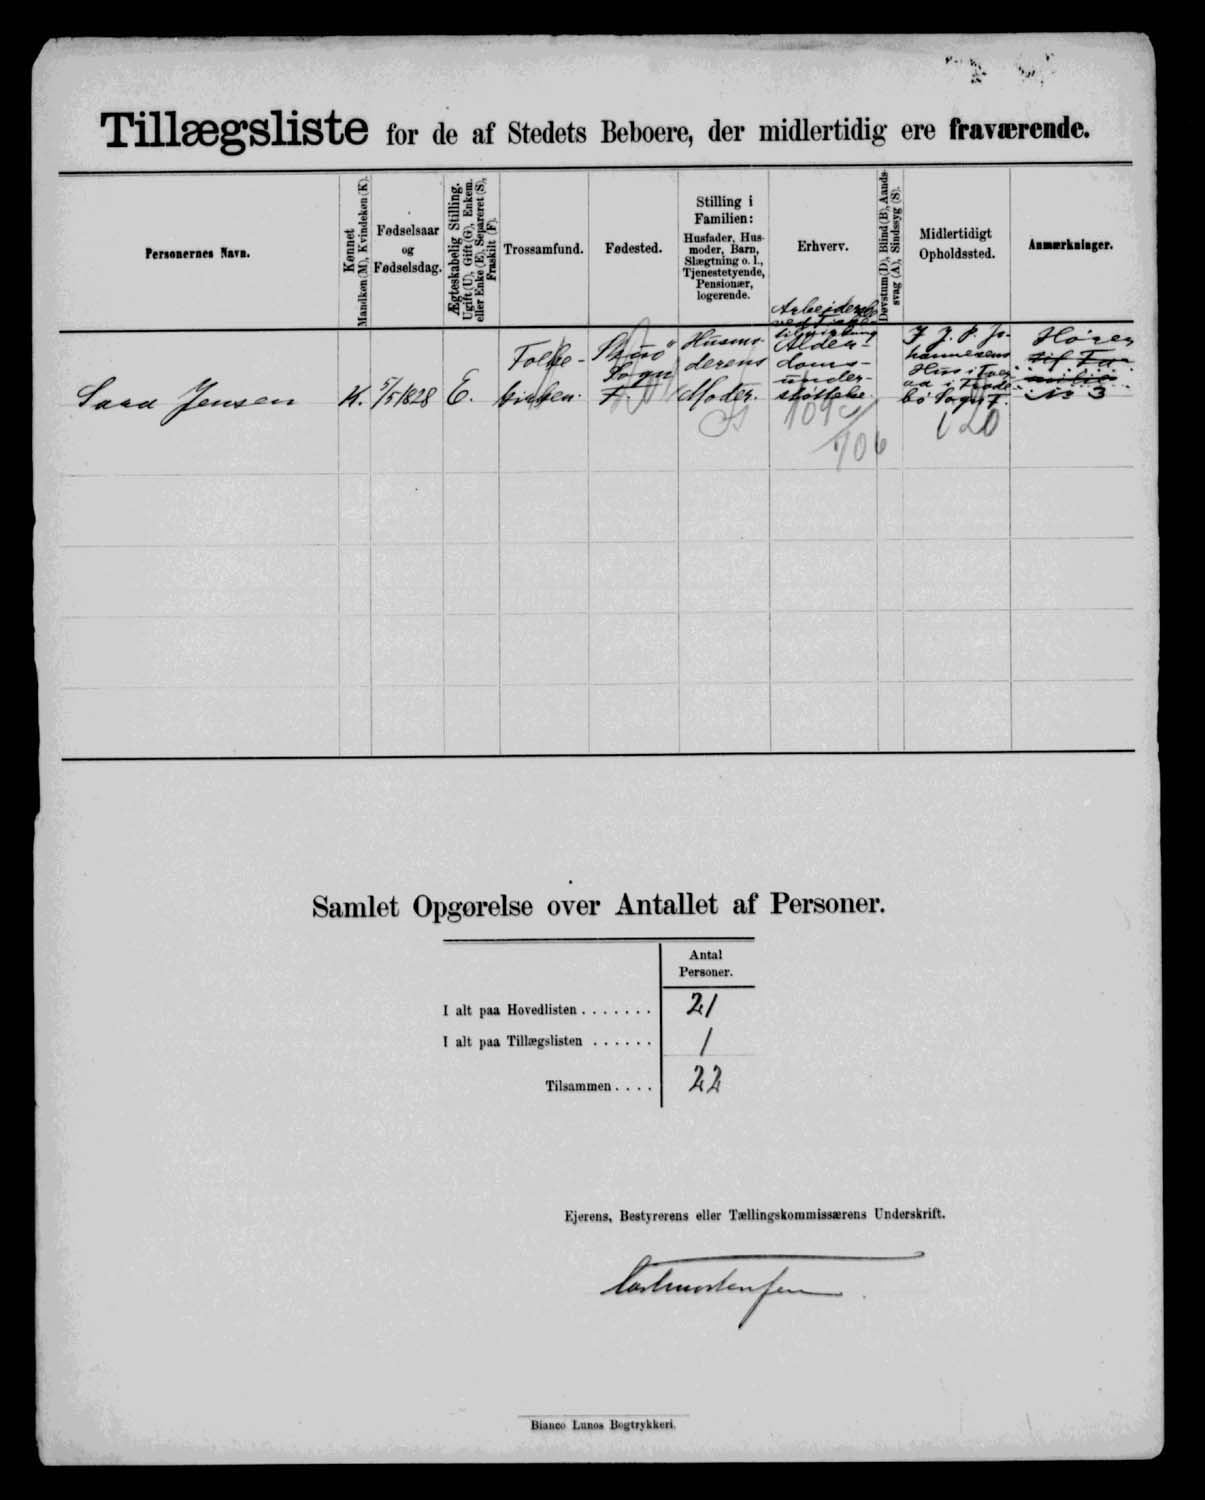 Tillægsliste for de af Stedets Beboere, der midlertidig ere fraværende.
Personernes Navn.
Kønnet
Mandkøn (M), Kvindekøn (K).
Fødselsaar
og
Fødselsdag.
Ægteskabelig Stilling.
Ugift (U), Gift (G), Enkem.
eller Enke (E), Separeret (S),
Fraskilt (F).
Trossamfund.
Fødested.
Stilling i
Familien:
Husfader, Hus-
moder, Barn,
Slægtning o. l.,
Tjenestetyende,
Pensionær,
logerende.
Erhverv.
Døvstum (D), Blind (B), Aands-
svag (A), Sindssyg (S).
Midlertidigt
Opholdssted.
Anmærkninger.
Jensen
K.
5/5 1828
E.
Folke-
kirken.
Sogn
F.
Husmo-
derens
Moder.
Alder-
doms-
under-
støttelse
J. J. P. Jo-
hannesens
Hus i
Sogn F.
Hører
til Fa-
milie
No 3
Samlet Opgørelse over Antallet af Personer.
Antal
Personer.
I alt paa Hovedlisten . . . . . . . 21
I alt paa Tillægslisten . . . . . . 1
Tilsammen . . . . 22
Ejerens, Bestyrerens eller Tællingskommissærens Underskrift.
Bianco Lunos Bogtrykkeri.